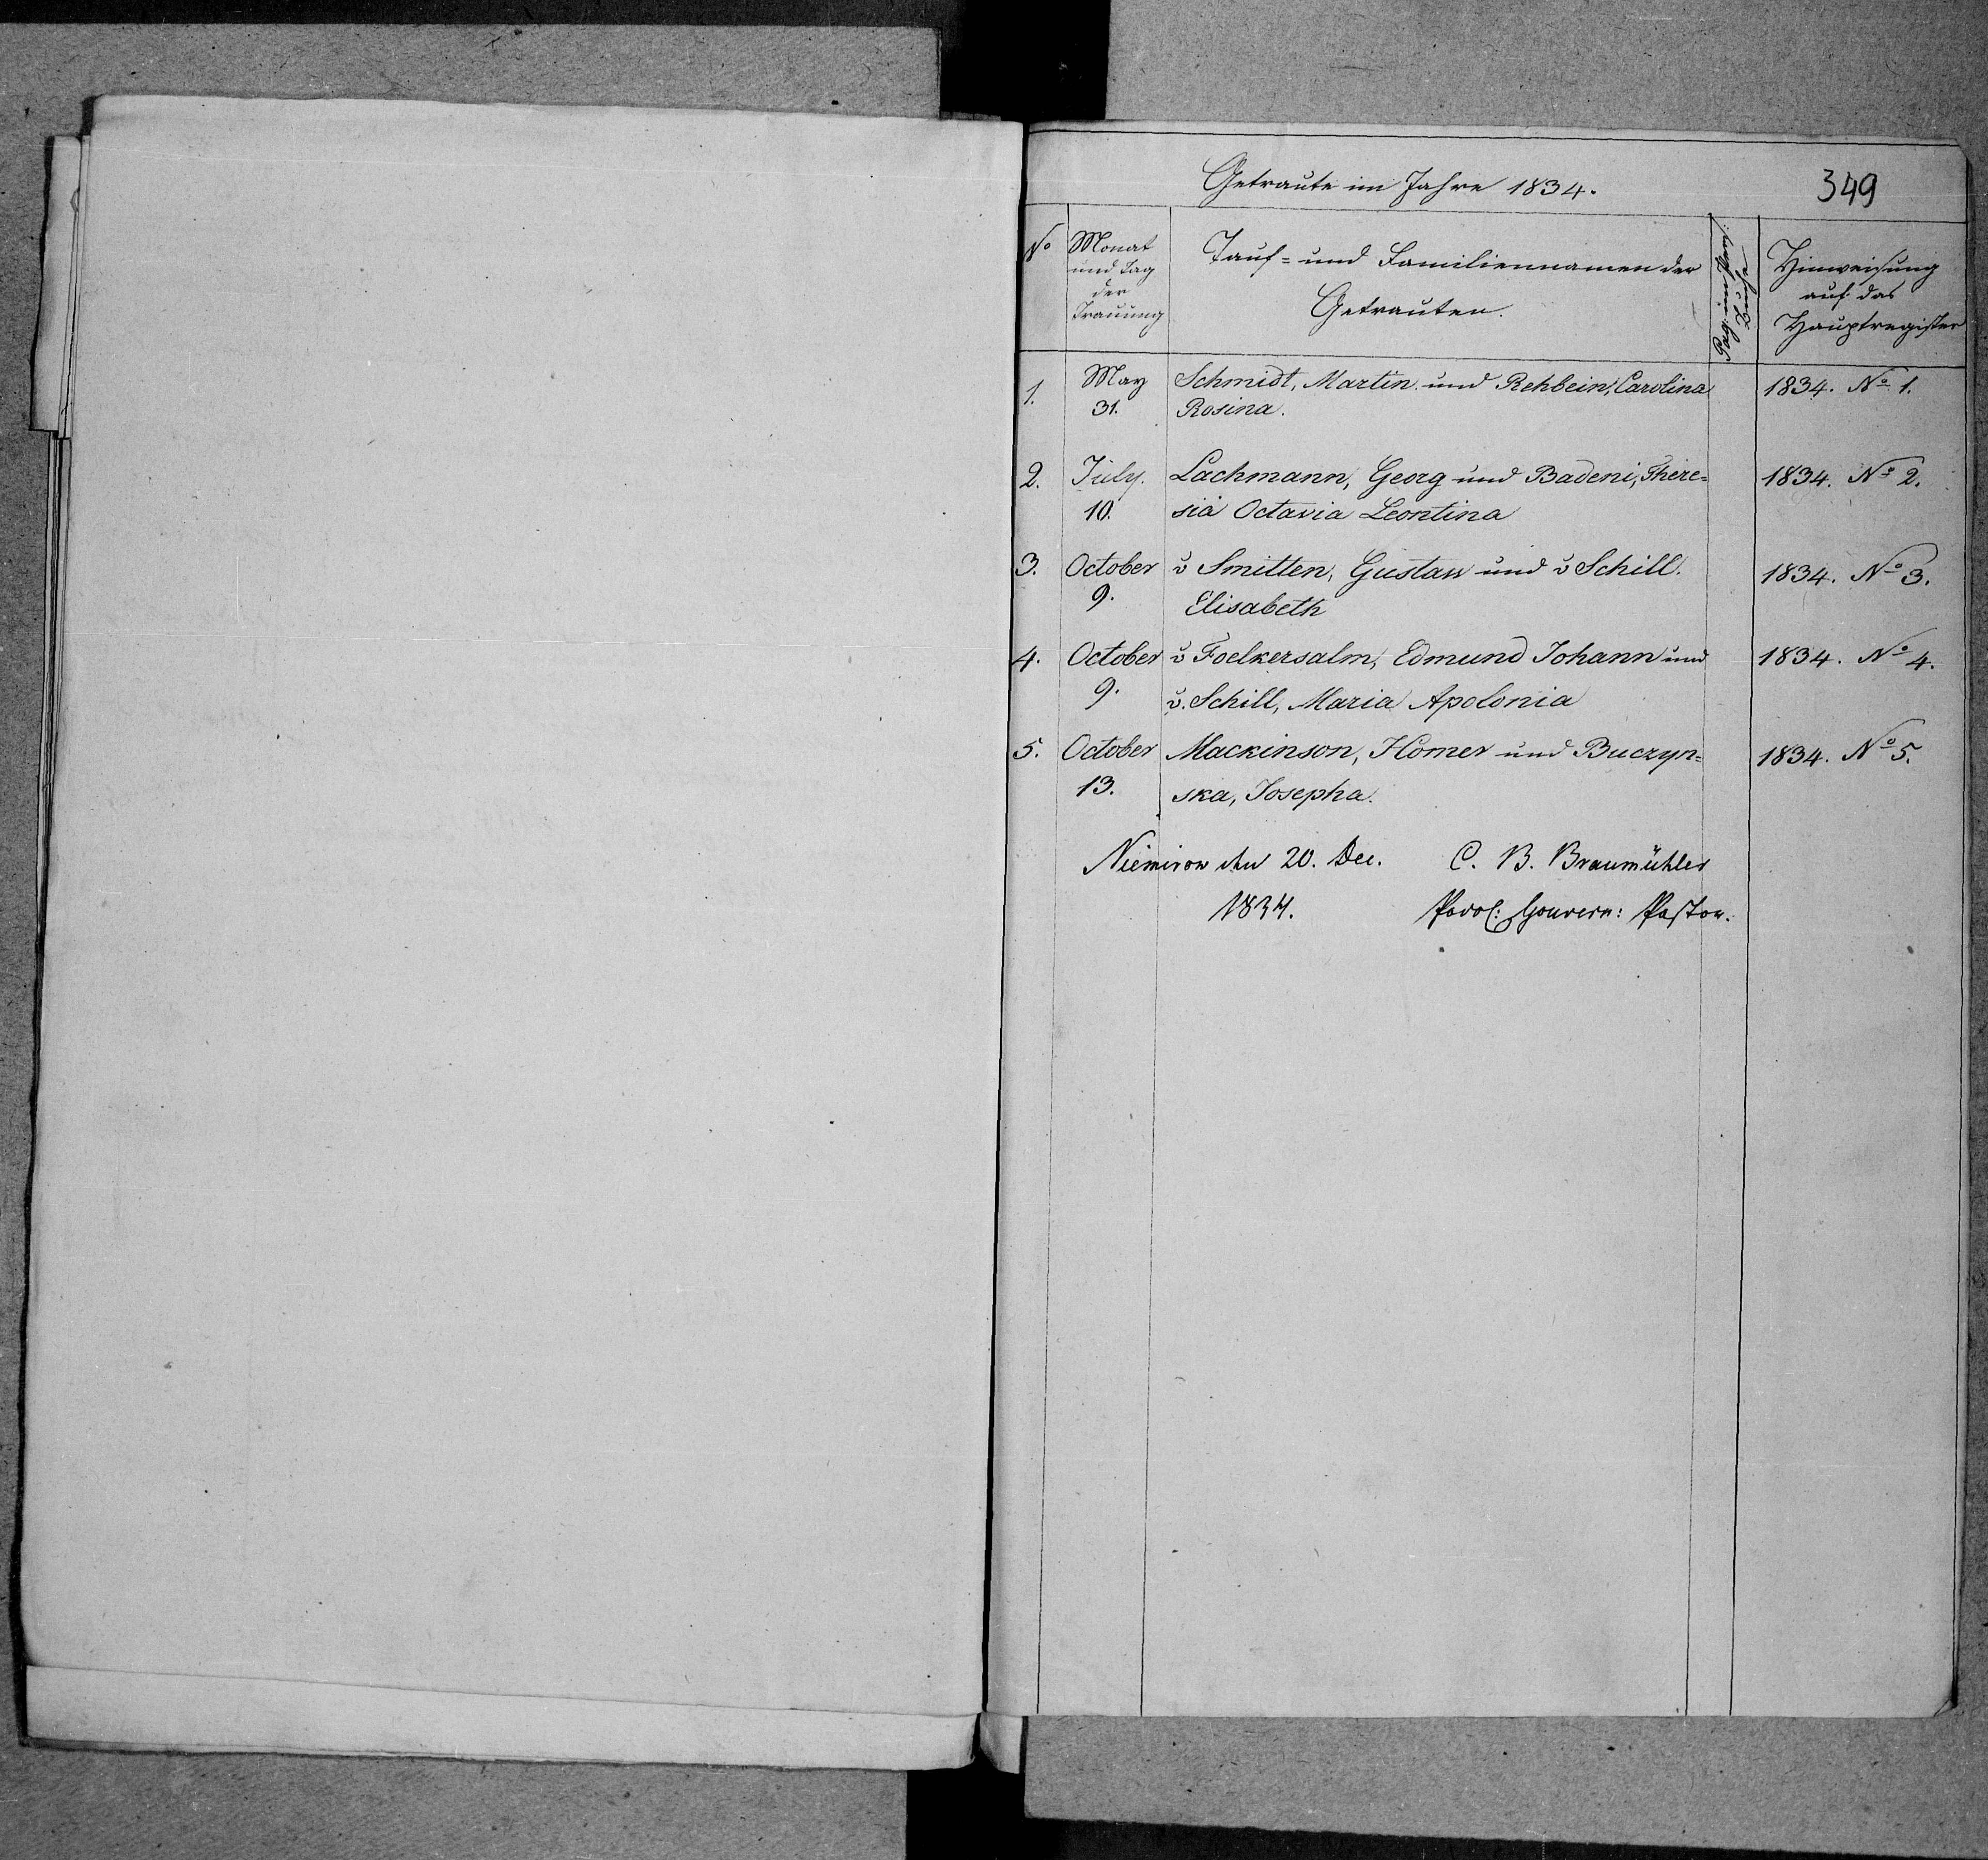 Getraute im Jahre 1834.
349
No
Monat und Tag der Trauung
Tauf= und Familiennamen der Getrauten.
Hinweisung auf das Hauptregister
1.
May 31.
Schmidt, Martin und Rehbein, Carolina
Rosina.
1834. No 1.
2.
July. 10.
Lachmann, Georg und Badeni, There=
sia Octavia Leontina
1834. No 2.
3.
October 9.
v Smitten, Gustav und v Schill.
Elisabeth
1834. No 3.
4.
October 9.
v Foelkersalm, Edmund Johann und
v. Schill, Maria Apolonia
1834. No 4.
5.
October 13.
Mackinson, Homer und Buczyn=
ska, Josepha.
1834. No 5.
Niemirow den 20. Dec. C. B. Braumühler
1834. Podol: Gouvern: Pastor.